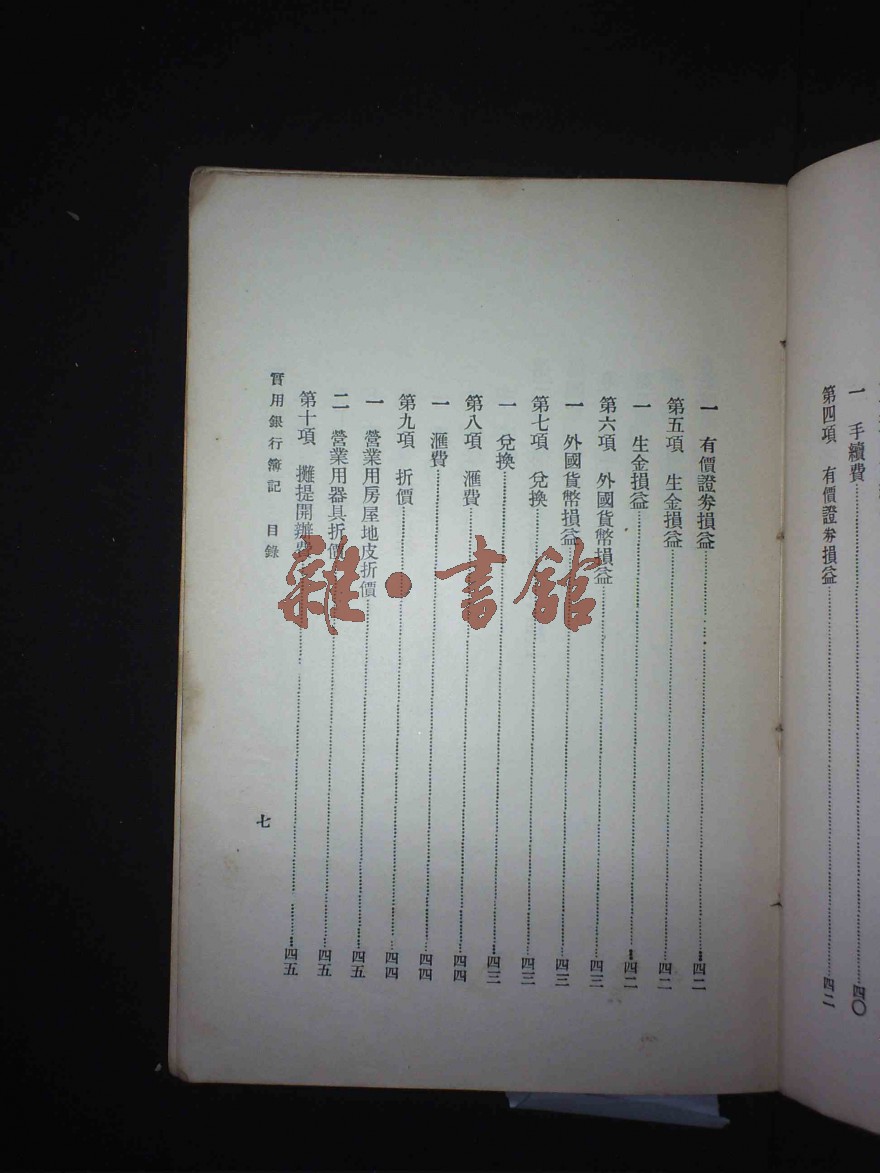 一　手續費……四〇
第四項　有價證券損益……四二
一　有價證券損益……四二
第五項　生金損益……四二
一　生金損益……四二
第六項　外國貨幣損益……四三
一　外國貨幣損益……四三
第七項　兌換……四三
一　兌換……四三
第八項　滙費……四四
一　滙費……四四
第九項　折價……四四
一　營業用房屋地皮折價……四五
二　營業用器具折價……四五
第十項　攤提開辦費……四五
實用銀行簿記　目錄
七
雜·書館